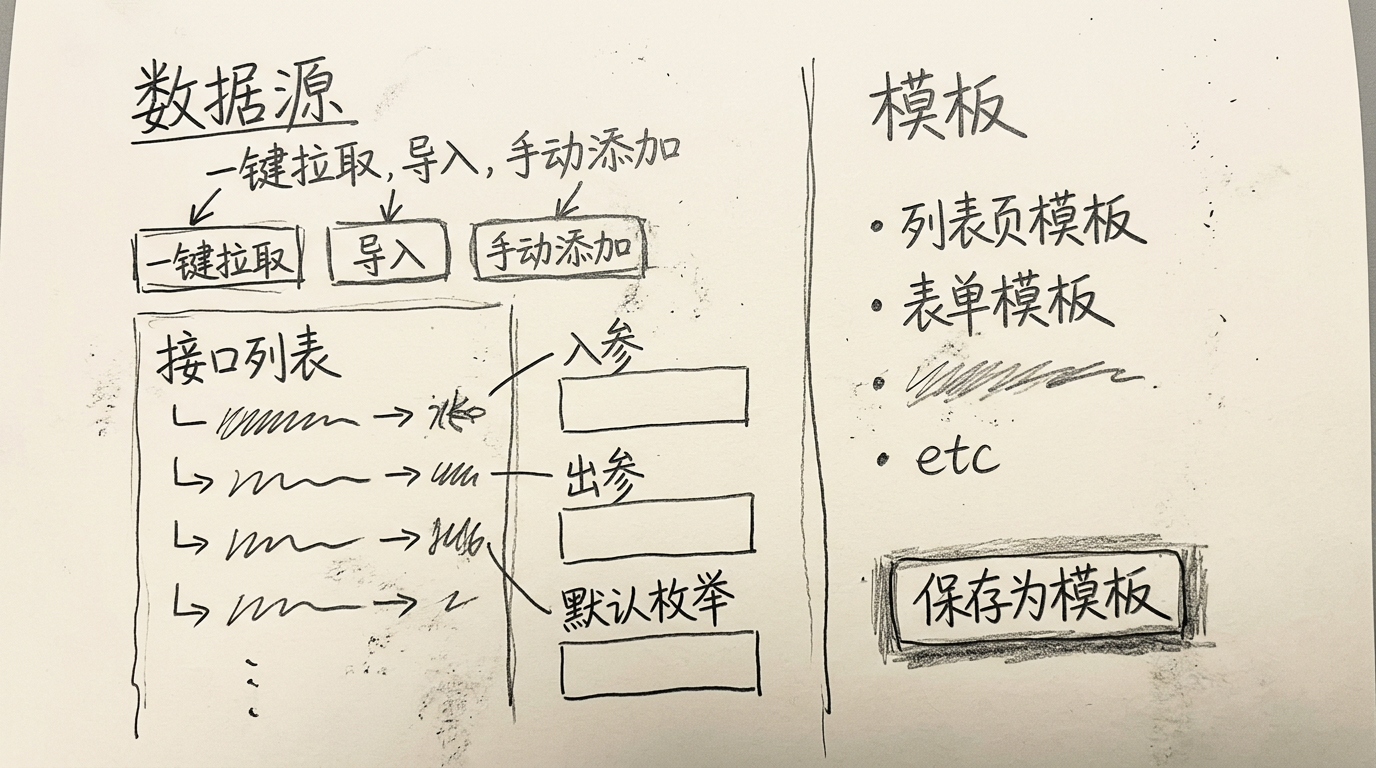 数据源
一键拉取,导入,手动添加
一键拉取
导入
手动添加
接口列表
入参
出参
默认枚举
模板
• 列表页模板
• 表单模板
•
• etc
保存为模板